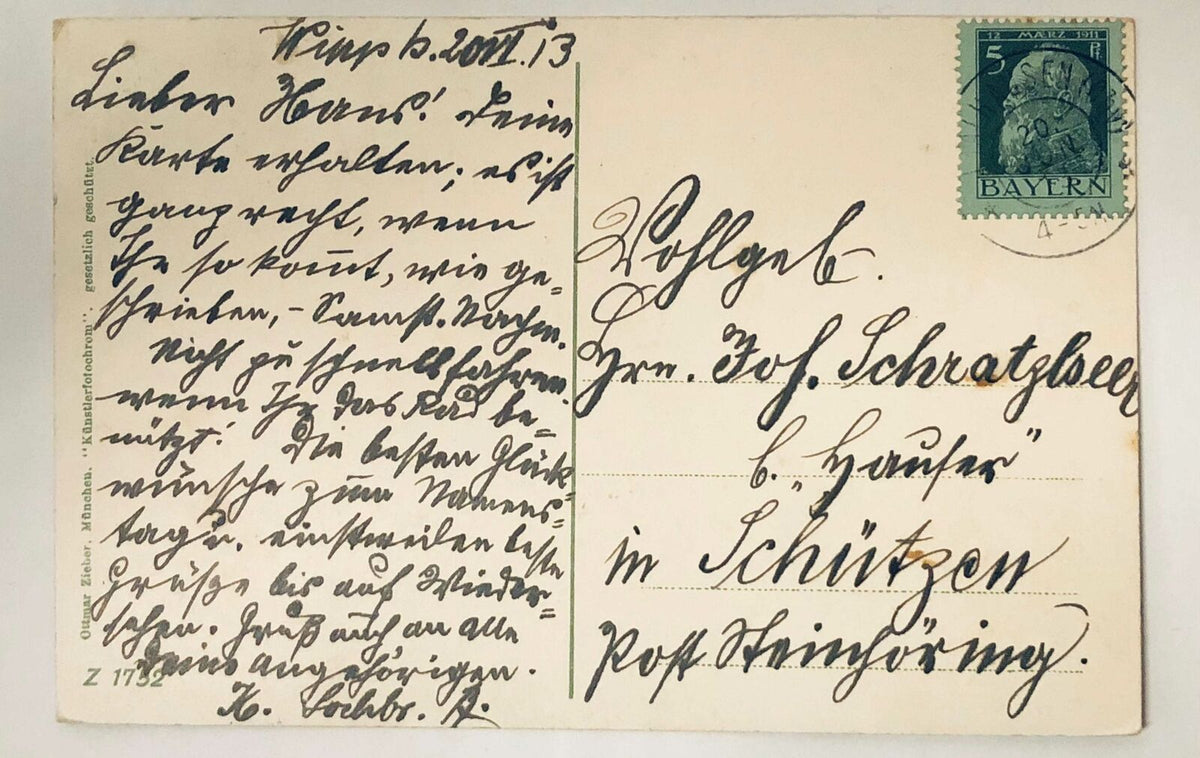 20.VI.13
Lieber Hans! Deine
Karte erhalten; es ist
ganz recht, wenn
Ihr so kom̅t, wie ge=
schrieben, – Samst. Nachm.
Nicht zu schnell fahren
wenn Ihr das Rad be=
nützt! Die besten Glück=
wünsche zum Namens=
tag u. einstweilen beste
Grüße bis auf Wieder=
sehen. Gruß auch an alle
Deine Angehörigen.
Ottmar Zieher, München. "Künstlerfotochrom", gesetzlich geschützt.
Z 1752
12 MÆRZ 1911
5 Pf
BAYERN
20.
4-5N
Wohlgeb.
Hrn. Joh. Schratzlseer
b. „Hauser"
in Schützen
Post Steinhöring.